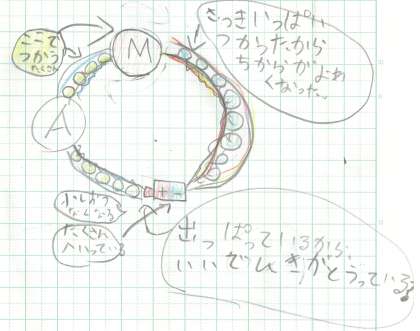 ここで
つかう
たくさん
M
さっきいっぱい
つかったから
ちからがよわ
くなった、
A
+ -
たくさん
へいっている
出っぱっているから、
いいでんきがとうっている